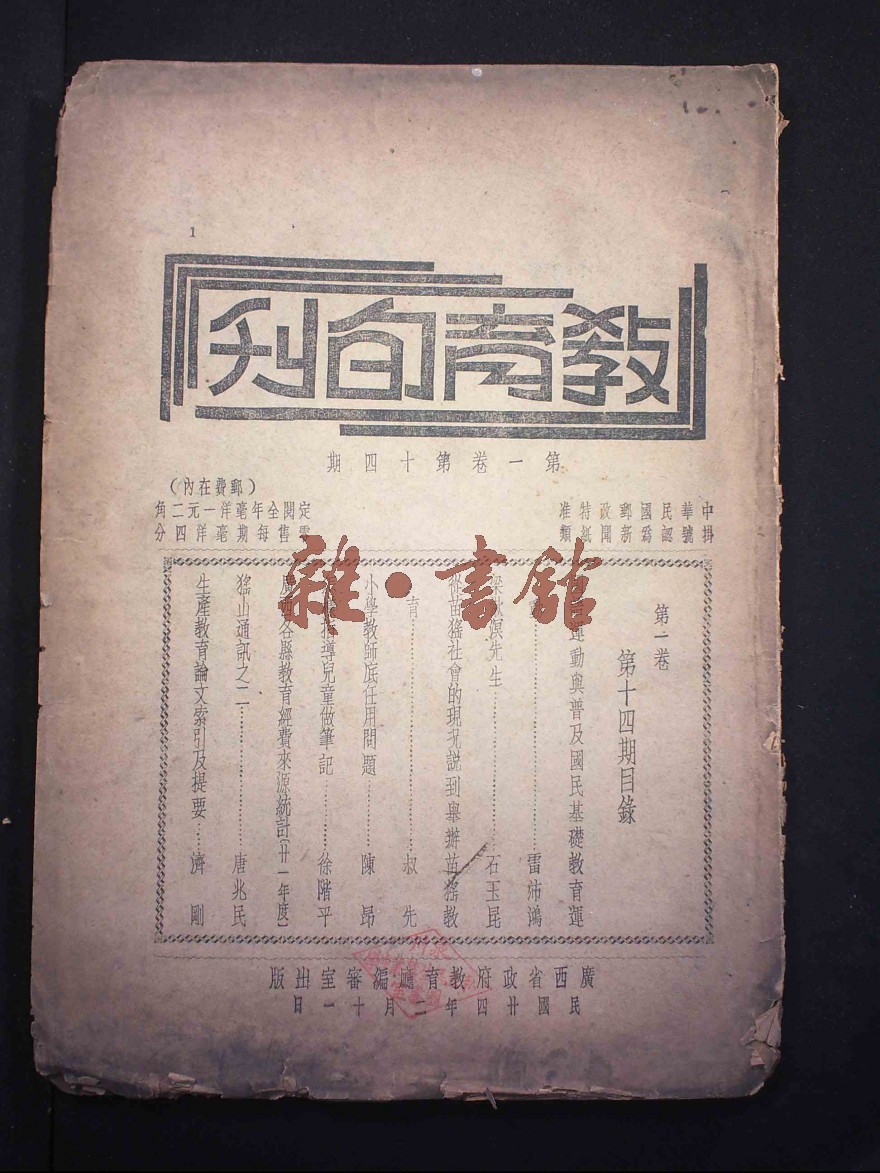 1
教育旬刊
第一卷第十四期
中華民國郵政特准
掛號認爲新聞紙類
(郵費在內)
定閱全年毫洋一元二角
零售每期毫洋四分
雜·書館
第一卷
第十四期目錄
運動與普及國民基礎教育運
雷沛鴻
梁漱溟先生………石玉昆
從苗猺社會的現况說到舉辦苗猺教
育………叔先
小學教師底任用問題………陳昂
指導兒童做筆記………徐階平
廣西各縣教育經費來源統計(廿一年度)
猺山通訊之二………唐兆民
生產教育論文索引及提要……濟剛
廣西省政府教育廳編審室出版
民國廿四年二月十一日